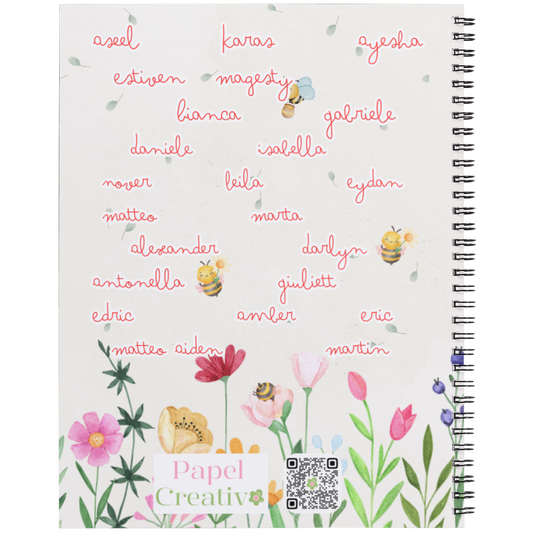 aseel karas ayesha
estiven magesty
bianca gabriele
daniele isabella
nover leila eydan
matteo marta
alexander darlyn
antonella giuliett
edric amber eric
matteo aiden martin
Papel
Creativo